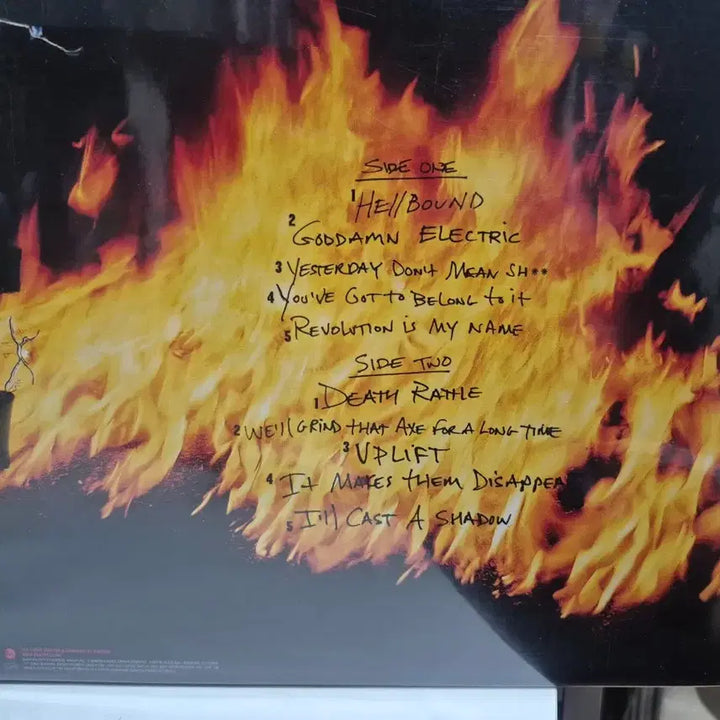 SIDE ONE
1 HellBOUND
2 GODDAMN ELECTRIC
3 YESTERDAY DON't MEAN SH**
4 YOU'VE GOT to BELONG to it
5 REVOLUTION iS MY NAME
SIDE TWO
1 DEATH RATTLE
2 WE'll GRIND tHAT AXE FOR A LONG TIME
3 UPLIFT
4 It MAKES tHEM DISAPPEA
5 I'll CAST A SHADOW